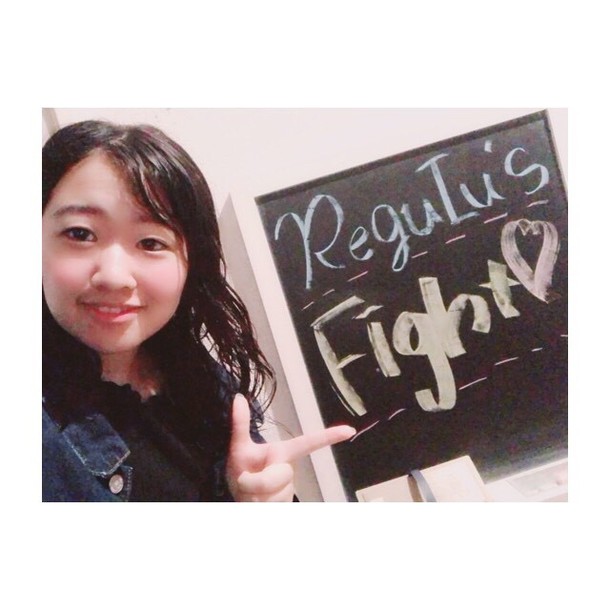 ReguLu's
Fight♡